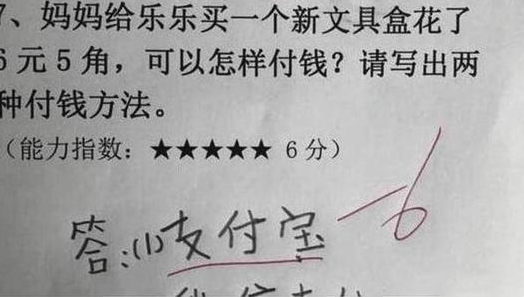 7、妈妈给乐乐买一个新文具盒花了
6元5角，可以怎样付钱？请写出两
种付钱方法。
（能力指数：★★★★★ 6分）
答：(1)支付宝 -6